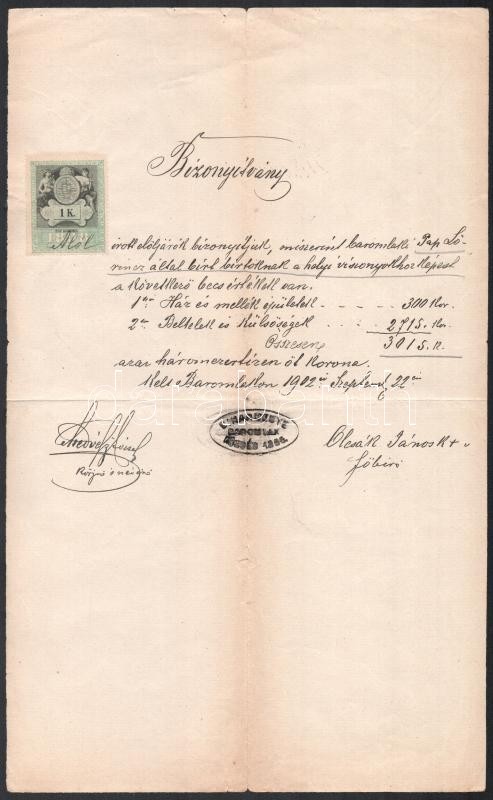 Bizonyítvány
1 K.
Alól
irott elöljárók bizonyitjuk, miszerint baromlaki Pap Ló-
rincz által birt birtoknak a helyi viszonyokhoz képest
a következő becsértékek van.
1ör Ház és mellék épületek - - - - 300 Kor.
2or Beltelek és Külsőségek - - 2715. Kor.
Összesen 3015. K.
azaz háromezertizen öt Korona.
Kelt Baromlakon 1902 Szeptemb 22
BAROMLAK
KÖZSÉG 1886.
Olcsák János k+v
főbiró
Körjegyző